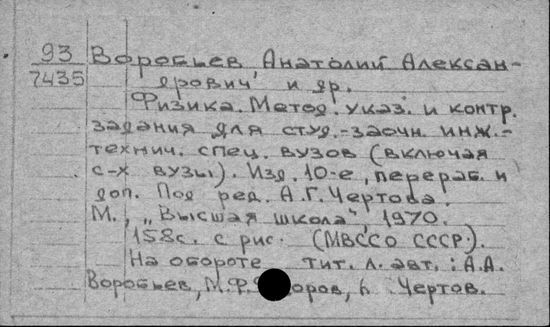 93
7435
Воробьев Анатолий Алексан-
дрович и др.
Физика. Метод. указ. и контр.
задания для студ.-заочн. инж.-
технич. спец. вузов (включая
с-х вузы). Изд. 10-е, перераб. и
доп. Под ред. А.Г. Чертова.
М., „Высшая школа", 1970.
158с. с рис. (МВССО СССР).
На обороте тит. л. авт.: А.А.
Воробьев, М.Ф. Чертов.